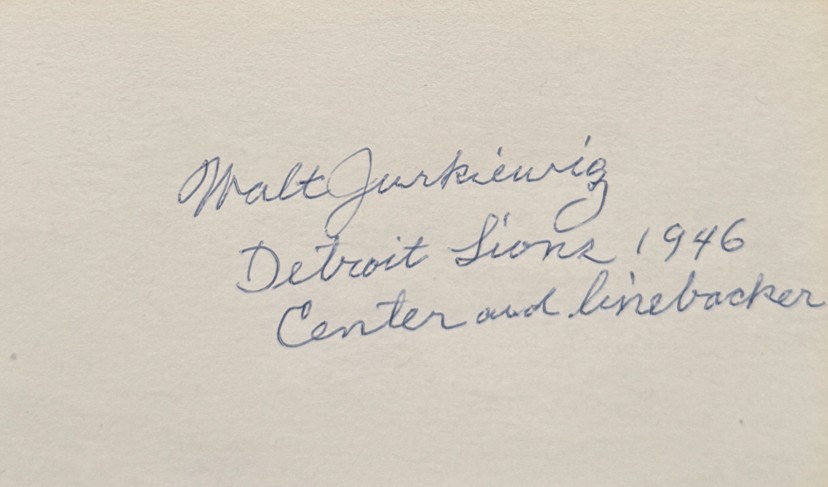 Walt Jurkiewiz
Detroit Lions 1946
Center and linebacker